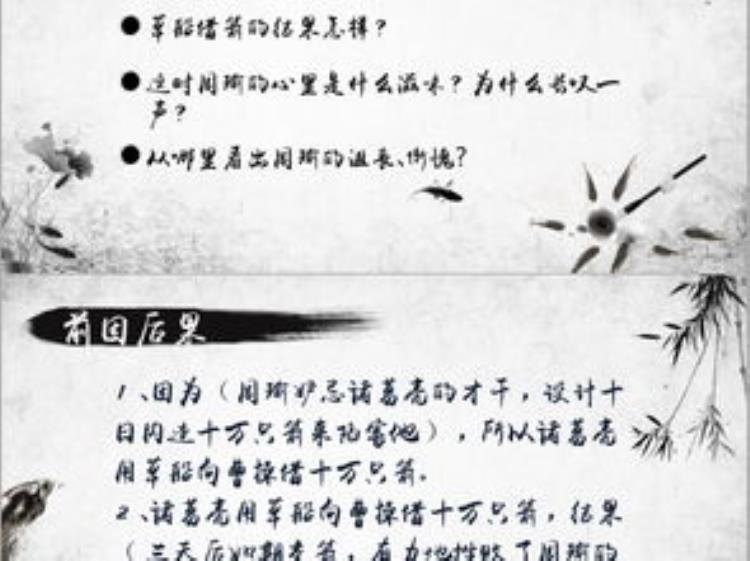 ●草船借箭的结果怎样?
●这时周瑜的心里是什么滋味?为什么长叹一
声?
●从哪里看出周瑜的沮丧、惭愧?
前因后果
1、因为(周瑜妒忌诸葛亮的才干,设计十
日内造十万只箭来陷害他),所以诸葛亮
用草船向曹操借十万只箭。
2、诸葛亮用草船向曹操借十万只箭,结果
(三天后如期交箭,有力地挫败了周瑜的